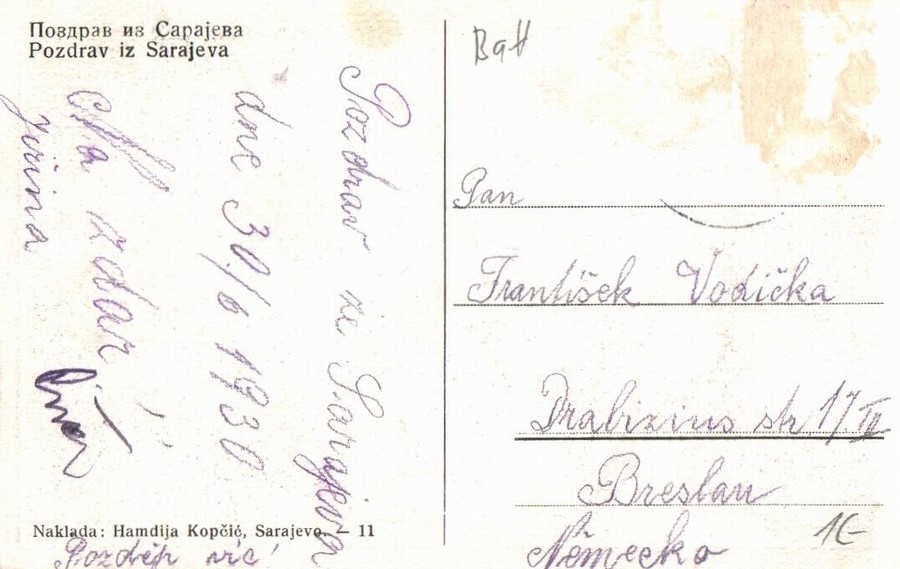 Поздрав из Сарајева
Pozdrav iz Sarajeva
Pozdrav ze Sarajeva
dne 30/6 1930
zdar
Jiřina
Naklada: Hamdija Kopčić, Sarajevo. – 11
Pozdější
Pan
František Vodička
Drabizius str 17 III
Breslau
Německo
1€-